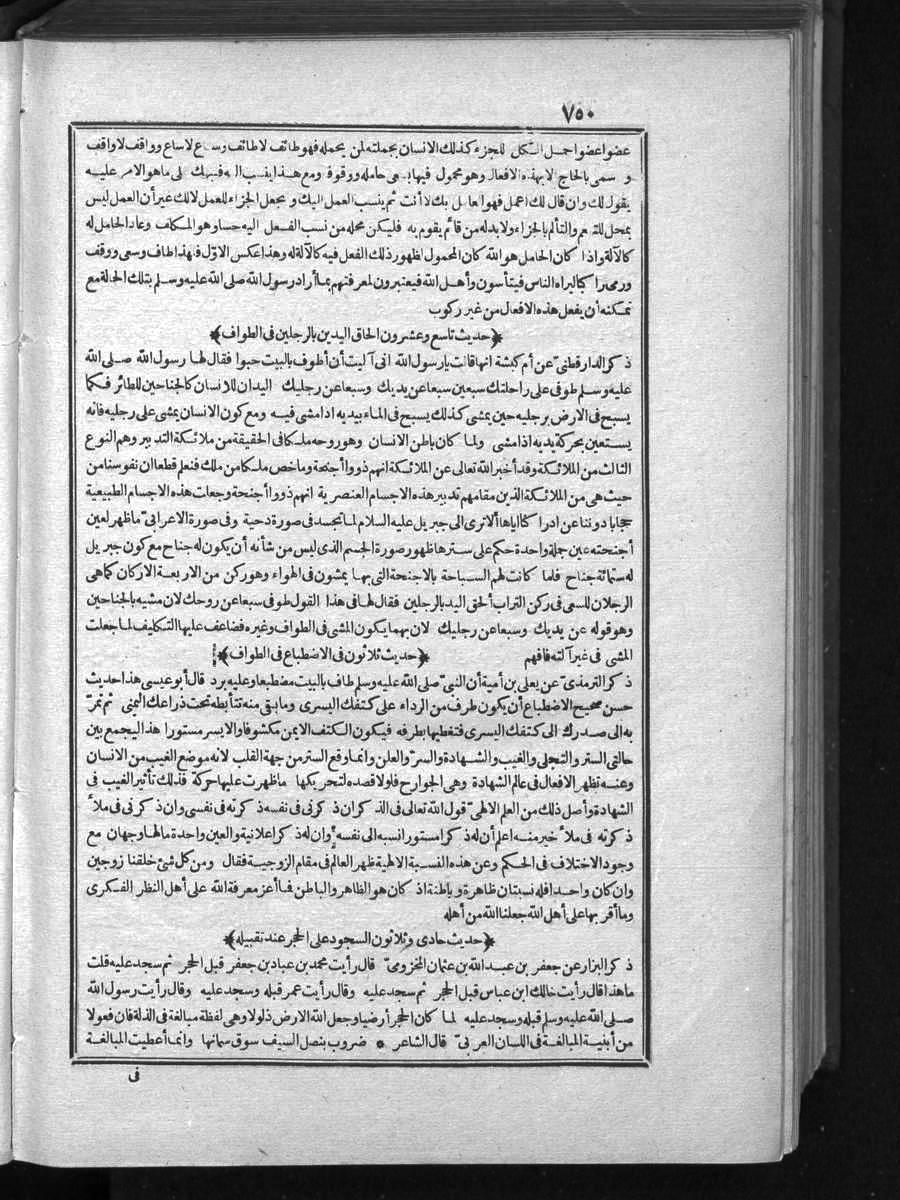 ٧٥٠
عضوا عضوا حمل الكل للجزء كذلك الانسان بجملته لمن يحمله فهو طائف لا طائف وساع لا ساع وواقف لا واقف
و سمى بالحاج لا بهذه الافعال وهو محمول فيها بسعى حامله ووقوفه ومع هذا ينسب اليه فنبهك على ما هو الامر عليه
يقول لك وان قال لك اعمل فهو العامل بك لا أنت ثم ينسب العمل اليك و يجعل الجزاء للعمل لا لك غير أن العمل ليس
بمحل للتنعم والتألم بالجزاء ولا بد له من قائم يقوم به فليكن محله من نسب الفعل اليه حسا وهو المكلف وعاد الحامل له
كالآلة واذا كان الحامل هو الله كان المحمول لظهور ذلك الفعل فيه كالآلة له وهذا عكس الاوّل فهذا طاف وسعى ووقف
ورمى راكبا ليراه الناس فيتأسون وأهل الله فيعتبرون لمعرفتهم بما أراد رسول الله صلى الله عليه وسلم بتلك الحالة مع
تمكنه أن يفعل هذه الافعال من غير ركوب
﴿حديث تاسع وعشرون الحاق اليدين بالرجلين فى الطواف﴾
ذكر الدارقطنىّ عن أم كبشة انها قالت يارسول الله انى آليت أن أطوف بالبيت حبوا فقال لها رسول الله صلى الله
عليه وسلم طوفى على راحلتك سبعين سبعا عن يديك وسبعا عن رجليك اليدان للانسان كالجناحين للطائر فكما
يسبح فى الارض برجليه حين يمشى كذلك يسبح فى الماء بيديه اذا مشى فيه ومع كون الانسان يمشى على رجليه فانه
يستعين بحركة يديه اذا مشى ولما كان باطن الانسان وهو روحه ملكا فى الحقيقة من ملائكة التدبير وهم النوع
الثالث من الملائكة وقد أخبر الله تعالى عن الملائكة انهم ذووا أجنحة وما خص ملكا من ملك فنعلم قطعا ان نفوسنا من
حيث هى من الملائكة الذين مقامهم تدبير هذه الاجسام العنصرية انهم ذووا أجنحة وجعلت هذه الاجسام الطبيعية
حجابا دوننا عن ادراكنا اياها ألا ترى الى جبريل عليه السلام لما تجسد فى صورة دحية وفى صورة الاعرابىّ ما ظهر لعين
أجنحته عين جملة واحدة حكم على سترها ظهور صورة الجسم الذى ليس من شأنه أن يكون له جناح مع كون جبريل
له ستمائة جناح فلما كانت لهم السباحة بالاجنحة التى بها يمشون فى الهواء وهو ركن من الاربعة الاركان كما هى
الرجلان للسعى فى ركن التراب ألحق اليد بالرجلين فقال لها فى هذا القول طوفى سبعا عن روحك لان مشيه بالجناحين
وهو قوله عن يديك وسبعا عن رجليك لان بهما يكون المشى فى الطواف وغيره فضاعف عليها التكليف لما جعلت
المشى فى غير آلته فافهم ﴿حديث ثلاثون فى الاضطباع فى الطواف﴾
ذكر الترمذىّ عن يعلى بن أمية أن النبىّ صلى الله عليه وسلم طاف بالبيت مضطبعا وعليه برد قال أبو عيسى هذا حديث
حسن صحيح الاضطباع أن يكون طرف من الرداء على كتفك اليسرى وما بقى منه تتأبطه تحت ذراعك اليمنى ثم تمرّ
به الى صدرك الى كتفك اليسرى فتغطيها بطرفه فيكون الكتف الايمن مكشوفا والايسر مستورا هذا ليجمع بين
حالتى الستر والتجلى والغيب والشهادة والسرّ والعلن وانما وقع الستر من جهة القلب لانه موضع الغيب من الانسان
وعنه تظهر الافعال فى عالم الشهادة وهى الجوارح فلولا قصده لتحريكها ما ظهرت عليها حركة فذلك تأثير الغيب فى
الشهادة وأصل ذلك من العلم الالهىّ قول الله تعالى فى الذكر ان ذكرنى فى نفسه ذكرته فى نفسى وان ذكرنى فى ملأ
ذكرته فى ملأ خير منه اعلم أن له ذكرا مستورا نسبه الى نفسه وان له ذكرا علانية والعين واحدة ما لها وجهان مع
وجود الاختلاف فى الحكم وعن هذه النسبة الالهية ظهر العالم فى مقام الزوجية فقال ومن كل شئ خلقنا زوجين
وان كان واحدا فله نسبتان ظاهرة و باطنة اذ كان هو الظاهر والباطن فما أعز معرفة الله على أهل النظر الفكرى
وما أقربها على أهل الله جعلنا الله من أهله
﴿حديث حادى وثلاثون السجود على الحجر عند تقبيله﴾
ذكر البزار عن جعفر بن عبد الله بن عثمان المخزومىّ قال رأيت محمد بن عباد بن جعفر قبل الحجر ثم سجد عليه قلت
ما هذا قال رأيت خالك ابن عباس قبل الحجر ثم سجد عليه وقال رأيت عمر قبله وسجد عليه وقال رأيت رسول الله
صلى الله عليه وسلم قبله وسجد عليه لما كان الحجر أرضيا وجعل الله الارض ذلولا وهى لفظة مبالغة فى الذلة فان فعولا
من أبنية المبالغة فى اللسان العربىّ قال الشاعر * ضروب بنصل السيف سوق سمانها وانما أعطيت المبالغة
فى